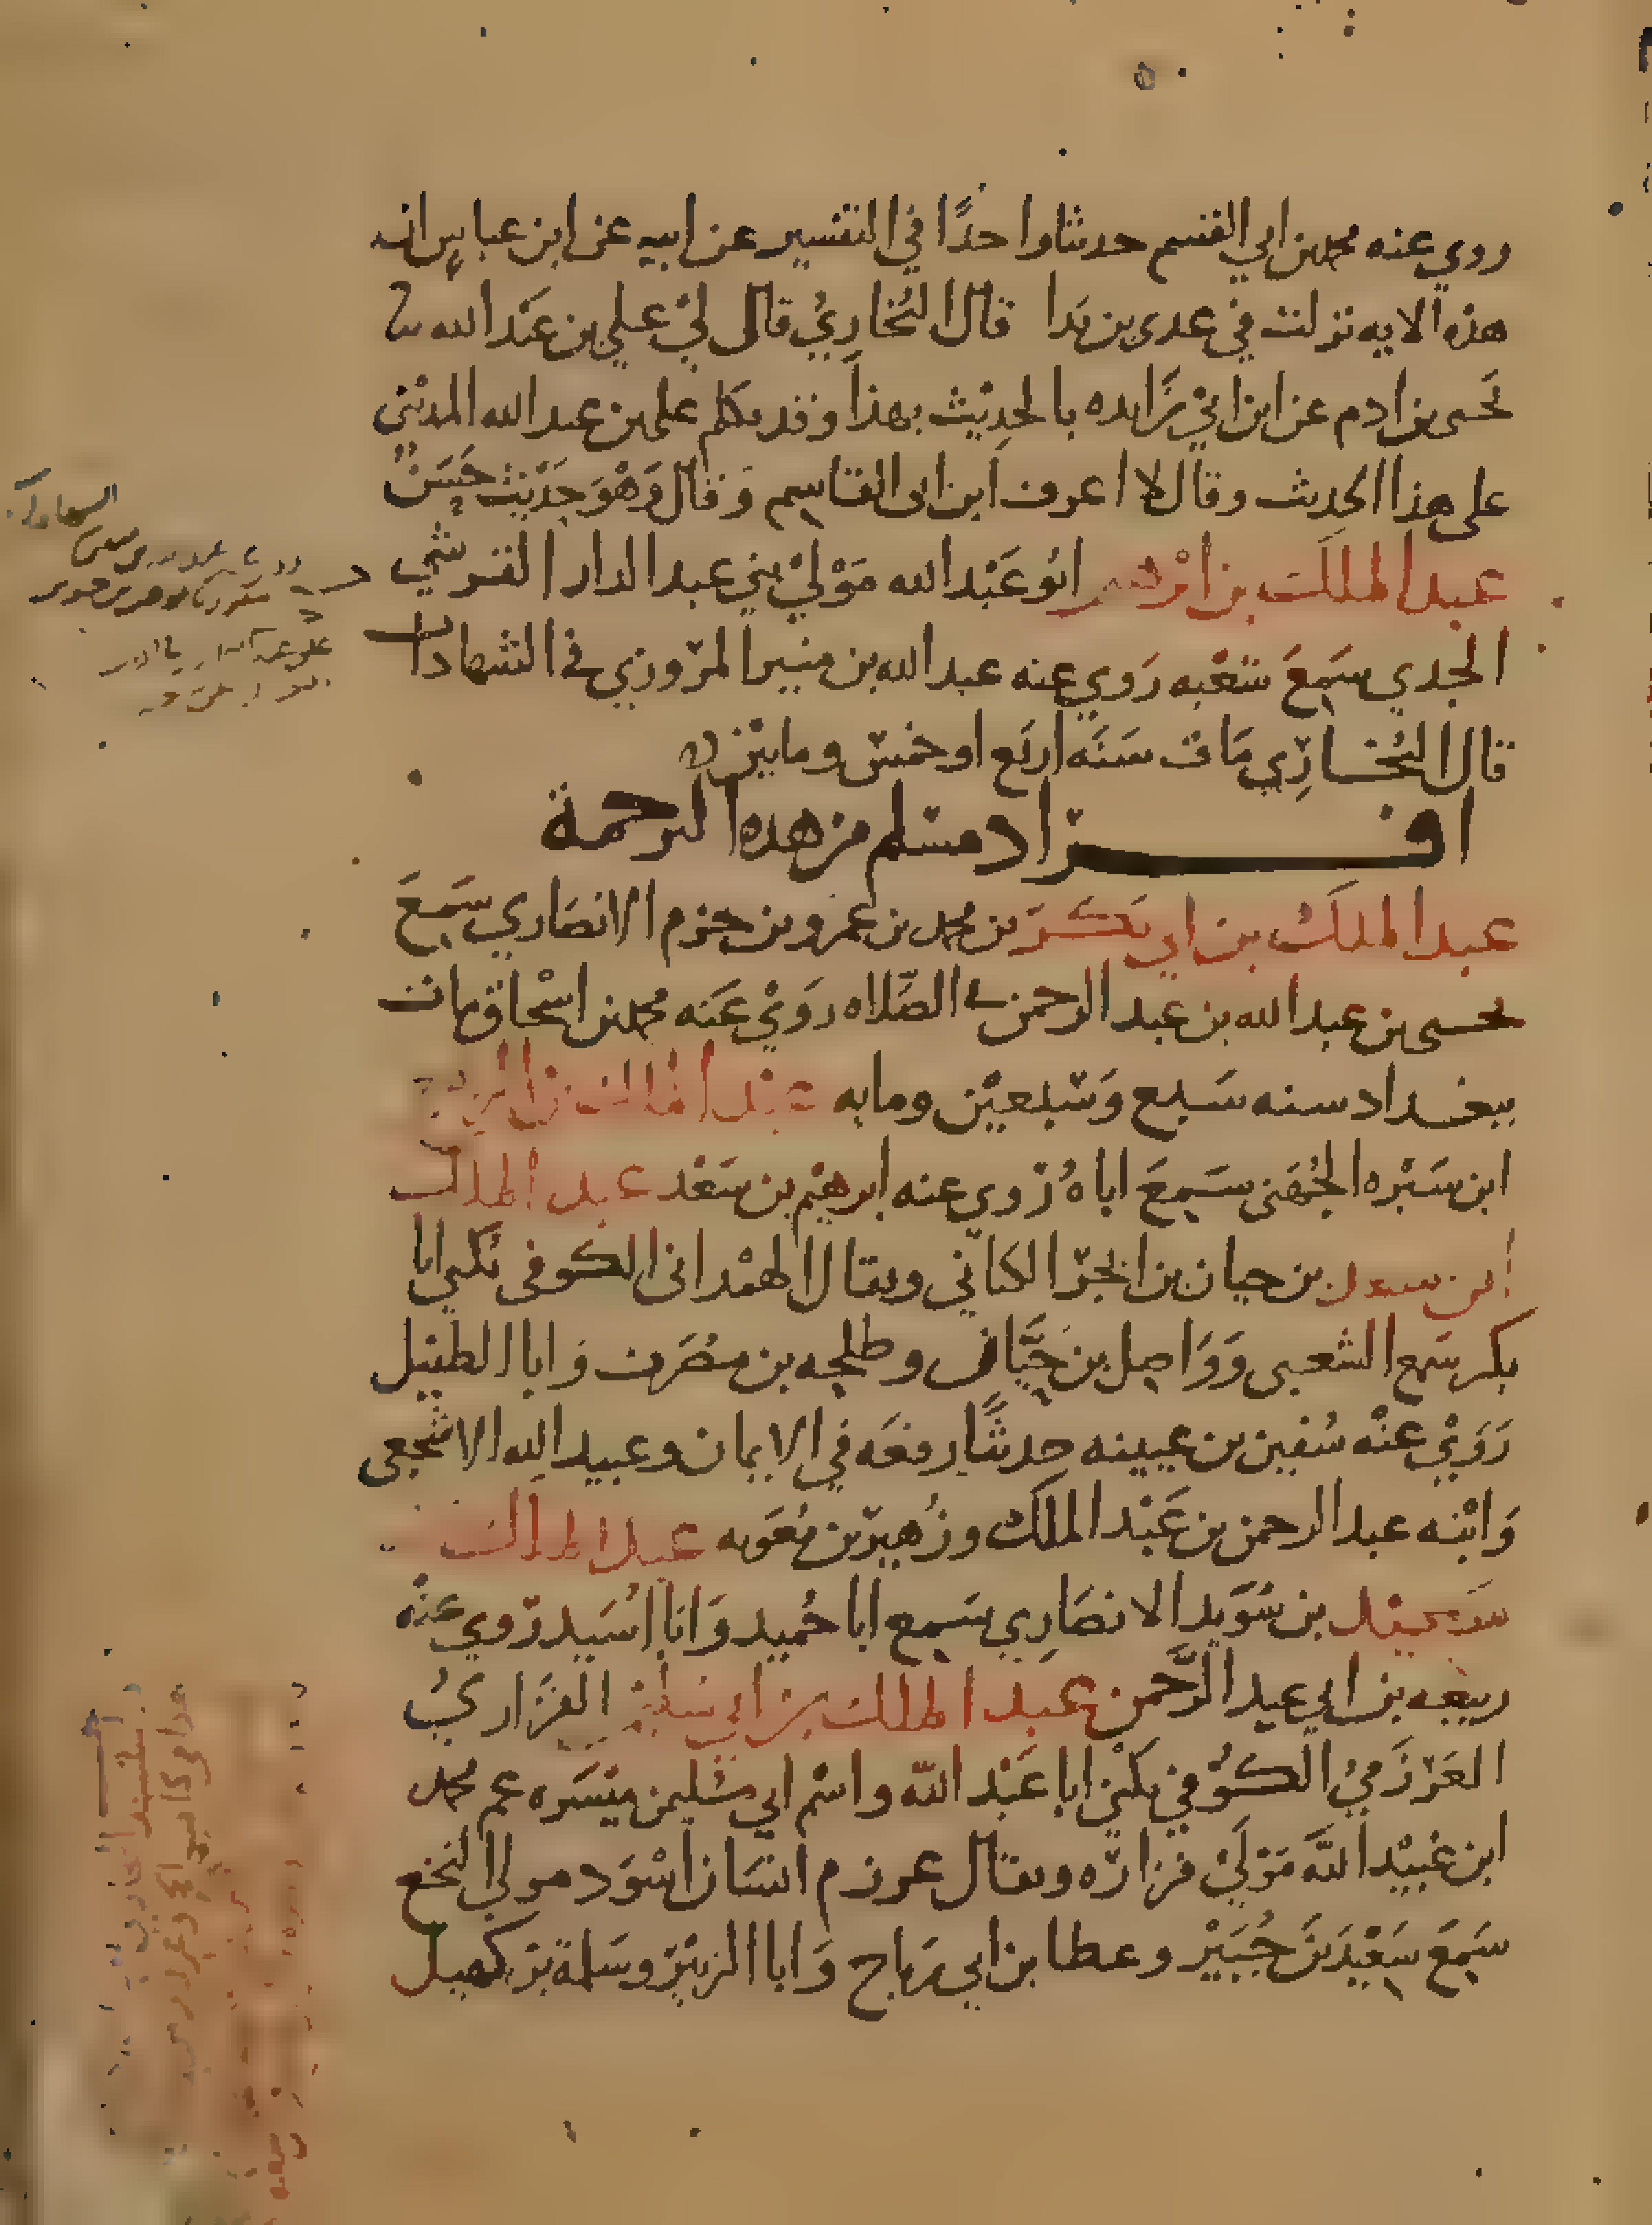 روي عنه محمد بن ابي القسم حدثنا واحدًا في التفسير عن ابيه عن ابن عباس ان
هذه الايه نزلت في عدي بن بدا قال البُخَاريُ قال لي علي بن عَبْد الله نا
يحيى بن ادم عن ابن ابي زَايده بالحديث بهذا وقد تكلم على بن عبد الله المديني
على هذا الحديث وقال لا اعرف ابن ابى القاسم وقال وَهُوَ حَدَيْث حَسَنٌ
عبد الملك بن ابرهيم ابُو عَبْد الله مَوْلي بني عبد الدار القرشي
الجدي سَمِعَ شعْبه رَوَي عنه عبد الله بن منير المروزي في الشهادات
قال البُخَاري مَات سَنَه اربَع او خمس ومايتن
افراد مسلم من هذه الترجمة
عبد الملك بن ابي بَكر بن محمد بن عمرو بن حزم الانصَاري سَمِعَ
يحيى بن عبد الله بن عبد الرحمن في الصَّلاه رَوَيْ عَنه محمد بن اسْحاق مات
ببغداد سنه سَبع وَسَبعيْن ومايه عبْد الملك بن الربيع
ابن سَبْره الجُهَني سَمِعَ اباهُ رَوي عنه ابرهيم بن سَعْد عبد الملك
ابن سعيد بن حيان بن ابجر الكناني ويقال الهمْداني الكوفي يكني ابا
بكر سَمع الشعبي وَوَاصِل بن حَيَّان وطلحه بن مصَرف وَابا الطفيل
رَوَيْ عنْه سُفين بن عيينه حدثًا رفعَه في الايمان وعبيد الله الاشجعي
وَابْنه عبد الرحمن بن عَبْد الملك وزُهير بن مُعَويه عبد الملك بن
سَعيْد بن سُوَيد الانصَارِي سَمِع ابا حُميد وَابا اسَيد رَوي عنْه
ربيعه بن ابي عبد الرَّحمن عبد الملك بن ابي سليمن الفَزَاريُ
العَرْزَميُ الكوُفي يكني ابا عَبْد الله واسْم ابي سُليمن ميْسَره عم محمد
ابن عُبيْد الله مَوْلَيْ فزارَه ويقال عرزم انسَان اسْوَد مولي النخع
سَمِعَ سَعْيدَ بنَ جُبَيْر وعطا بن ابي رَباح وَابا الزبيْر وسَلمة بن كهيل